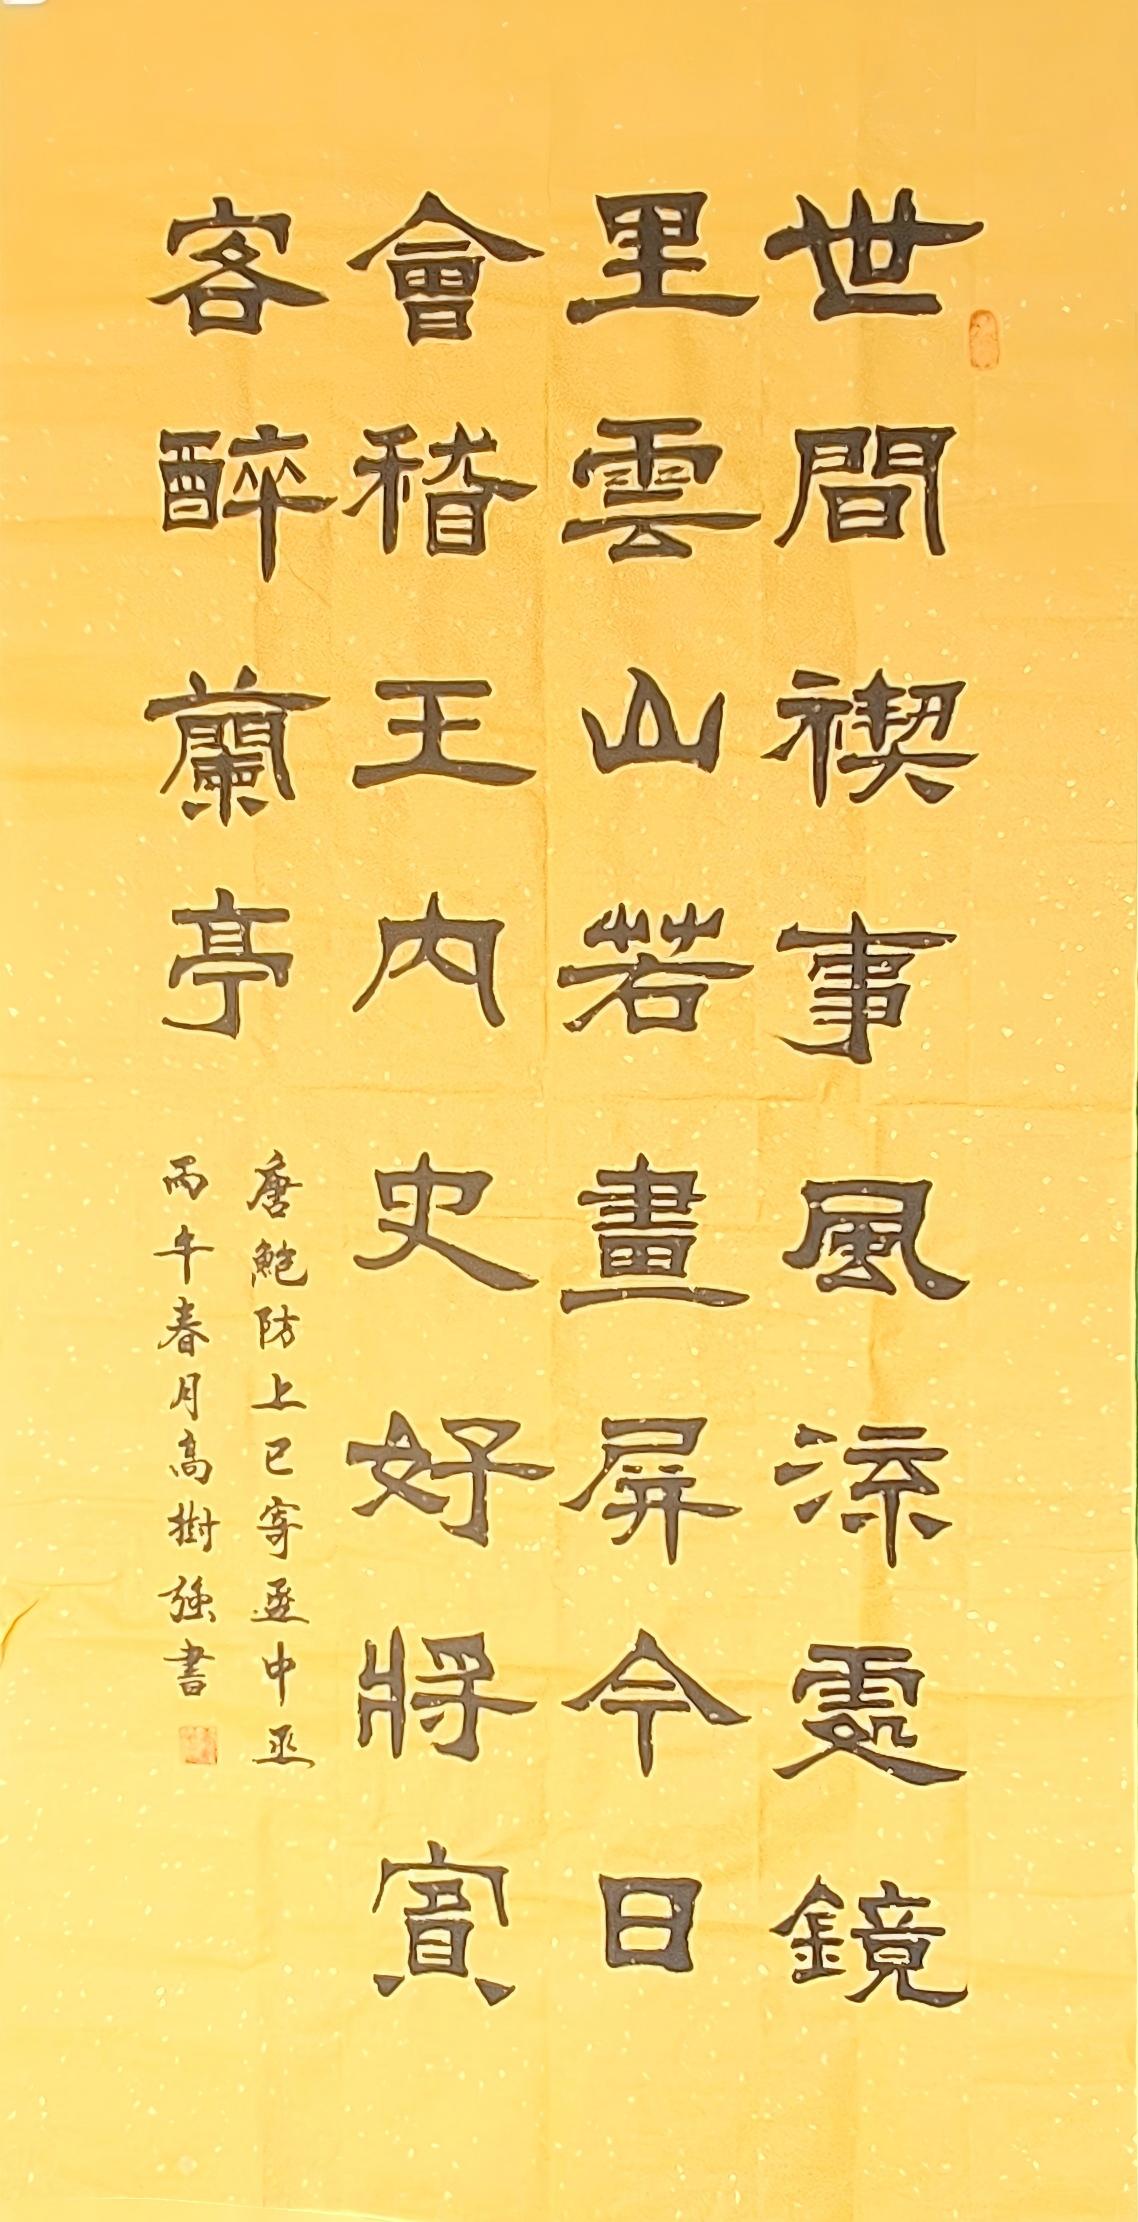 世間禊事風流處鏡
里雲山若畫屏今日
會稽王內史好將賓
客醉蘭亭
唐鮑防上巳寄孟中丞
丙午春月高樹強書